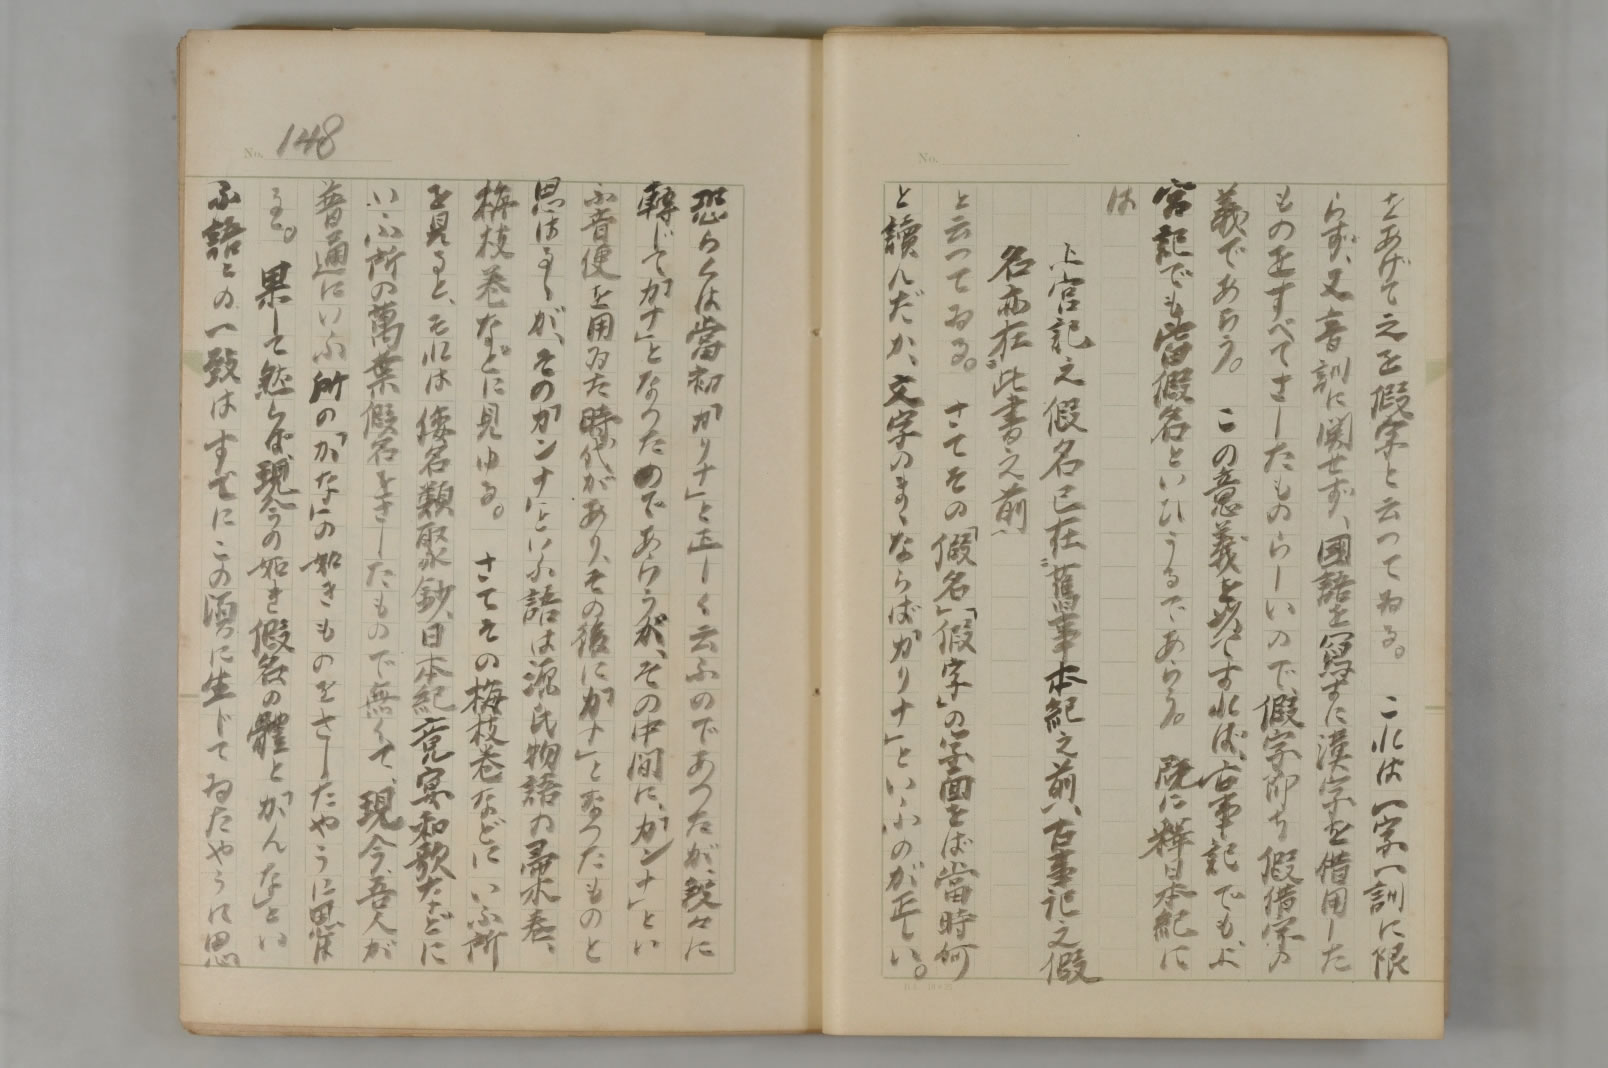 をあげて之を假字と云つてゐる。これは一字一訓に限
らず、又音訓に関せず、國語を寫すに漢字を借用した
ものをすべてさしたものらしいので、假字即ち假借字の
義であらう。この意義を以てすれば、古事記でも上
宮記でも皆假名といひうるであらう。既に釋日本紀に
は
上宮記之假名已在舊事本紀之前、古事記之假
名亦在此書之前
と云つてゐる。さてその「假名」「假字」の字面をば當時何
と讀んだか、文字のまゝならば「カリナ」といふのが正しい。
No.
No. 148
恐らくは當初「カリナ」と正しく云ふのであつたが、段々に
轉じて「カナ」となつたのであらうが、その中間に、「カンナ」とい
ふ音便を用ゐた時代があり、その後に「カナ」となつたものと
思はるゝが、その「カンナ」といふ語は源氏物語の帚木巻、
梅枝巻などに見ゆる。さてその梅枝巻などにいふ所
を見ると、それは倭名類聚鈔、日本紀竟宴和歌などに
いふ所の萬葉假名をさしたもので無くて、現今、吾人が
普通にいふ所の「かな」の如きものをさしたやうに思は
る。果して然らば、現今の如き假名の體と「かんな」とい
ふ語との一致はすでにこの頃に生じてゐたやうに思